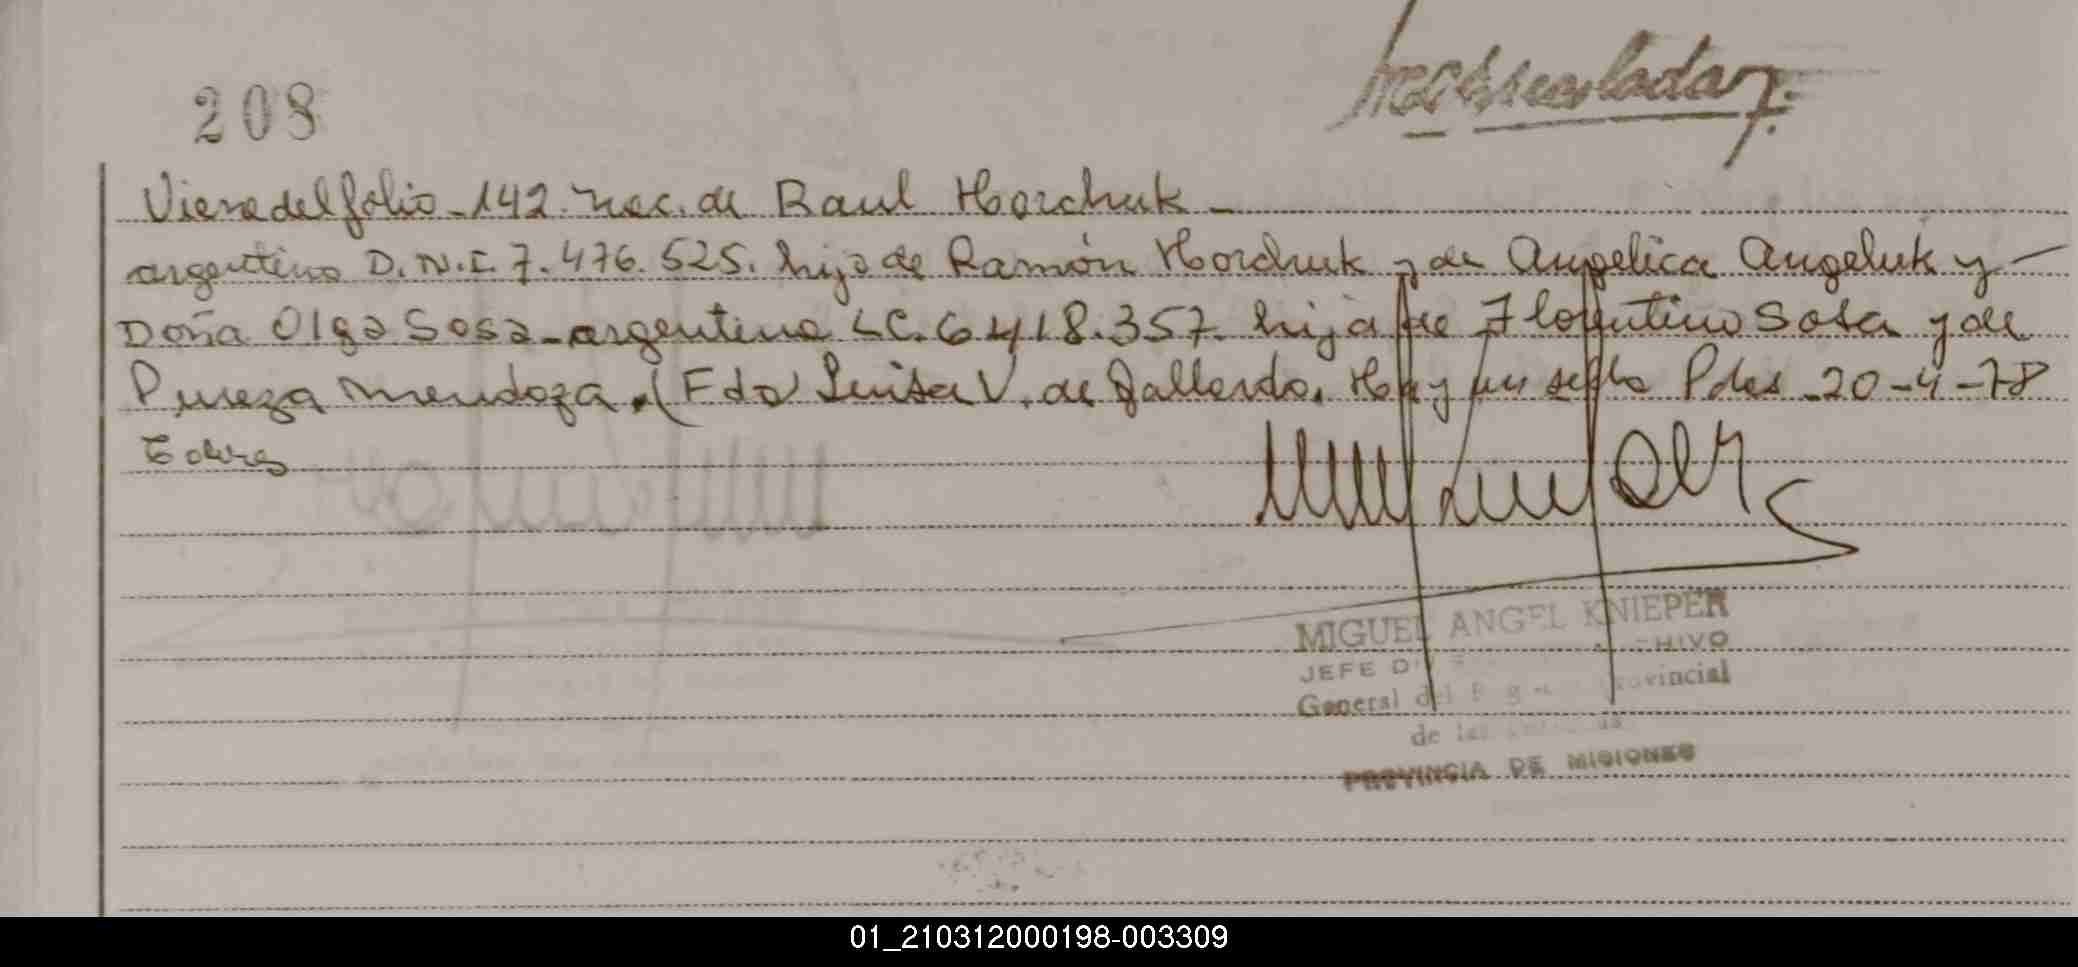 208
Viene del folio - 142. nac. de Raul Horchuk -
argentino D.N.I 7.476.525. hijo de Ramón Horchuk y de Angelica Angeluk y -
Doña Olga Sosa - argentina LC. 6.418.357. hija de Florentino Sosa y de
Pureza Mendoza. (Fdo Luisa V. de Gallardo. Hay un sello Pdas - 20-4-78
MIGUEL ANGEL KNIEPER
JEFE
General del Provincial
de las
PROVINCIA DE MISIONES
01_210312000198-003309